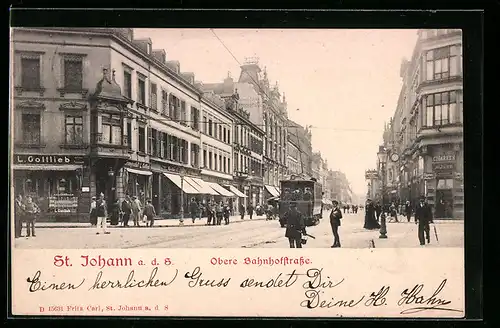 L. Gottlieb
St. Johann a. d. S.
Obere Bahnhofstraße.
Einen herrlichen Gruss sendet Dir
Deine H. Hahn
D 15631 Fritz Carl, St. Johann a. d S